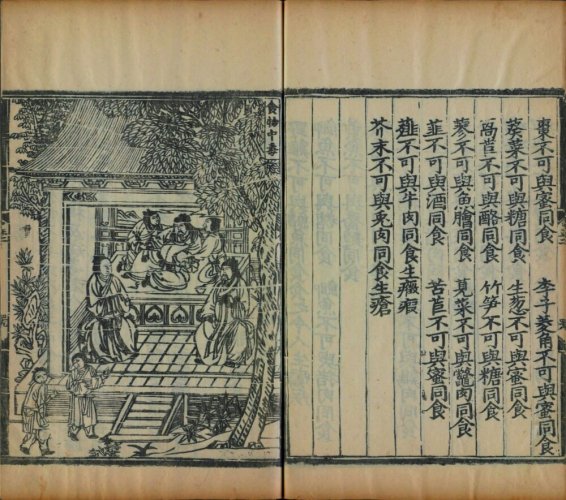 棗不可與蜜同食　李子菱角不可與蜜同食
葵菜不可與糖同食　生葱不可與蜜同食
萵苣不可與酪同食　竹笋不可與糖同食
蓼不可與魚膾同食　莧菜不可與鼈肉同食
韮不可與酒同食　苦苣不可與蜜同食
薤不可與牛肉同食生癥瘕
芥末不可與兎肉同食生瘡
食物中毒